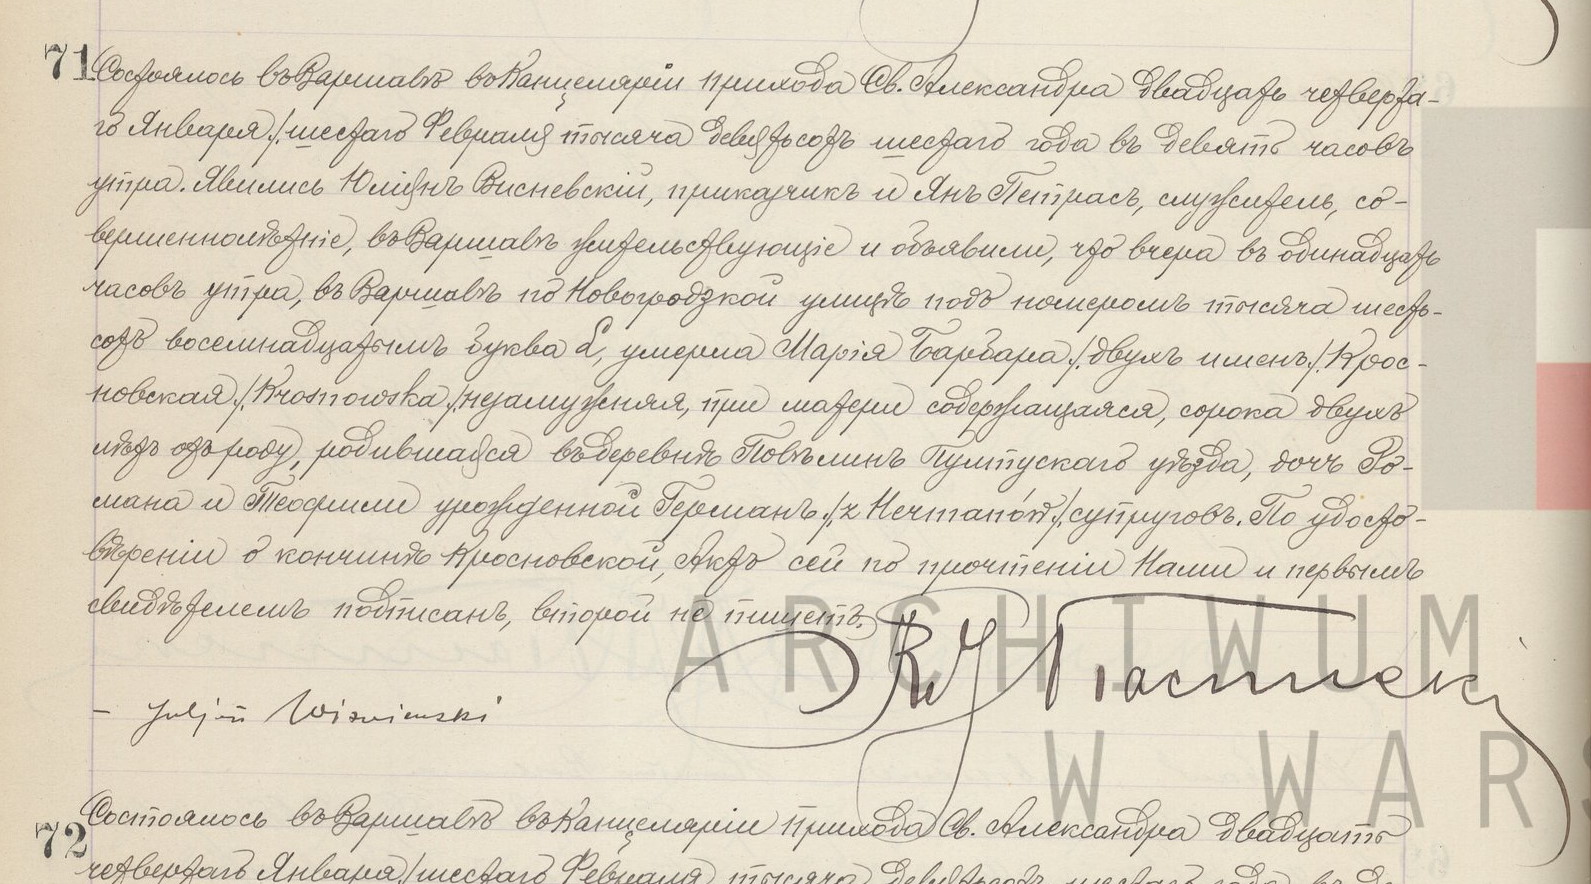 71 Состоялось въ Варшавѣ въ Канцеляріи прихода Св. Александра двадцать четверта-
го Января /шестаго Февраля тысяча девятьсотъ шестаго года въ девять часовъ
утра. Явились Юліянъ Висневскій, приказчикъ и Янъ Петрась, служитель, со-
вершеннолѣтніе, въ Варшавѣ жительствующіе и объявили, что вчера въ одинадцать
часовъ утра, въ Варшавѣ по Новогродзкой улицѣ подъ номеромъ тысяча шесть-
сотъ восемнадцатымъ буква L, умерла Марія Барбара /двухъ именъ/ Крос-
новская /Krosnowska/ незамужняя, при матери содержащаяся, сорока двухъ
лѣтъ отъ роду, родившаяся въ деревнѣ Повѣлинъ Пултускаго уѣзда, дочь Ро-
мана и Теофили урожденной Германъ /z Hermanów/ супруговъ. По удосто-
вѣреніи о кончинѣ Кросновской, Актъ сей по прочтеніи Нами и первымъ
свидѣтелемъ подписанъ, второй не пишетъ.
ARCHIWUM
– Juljan Wiśniewski
W WARS
72 Состоялось въ Варшавѣ въ Канцеляріи прихода Св. Александра двадцать
четвертаго Января /шестаго Февраля тысяча девятьсотъ шестаго года въ де